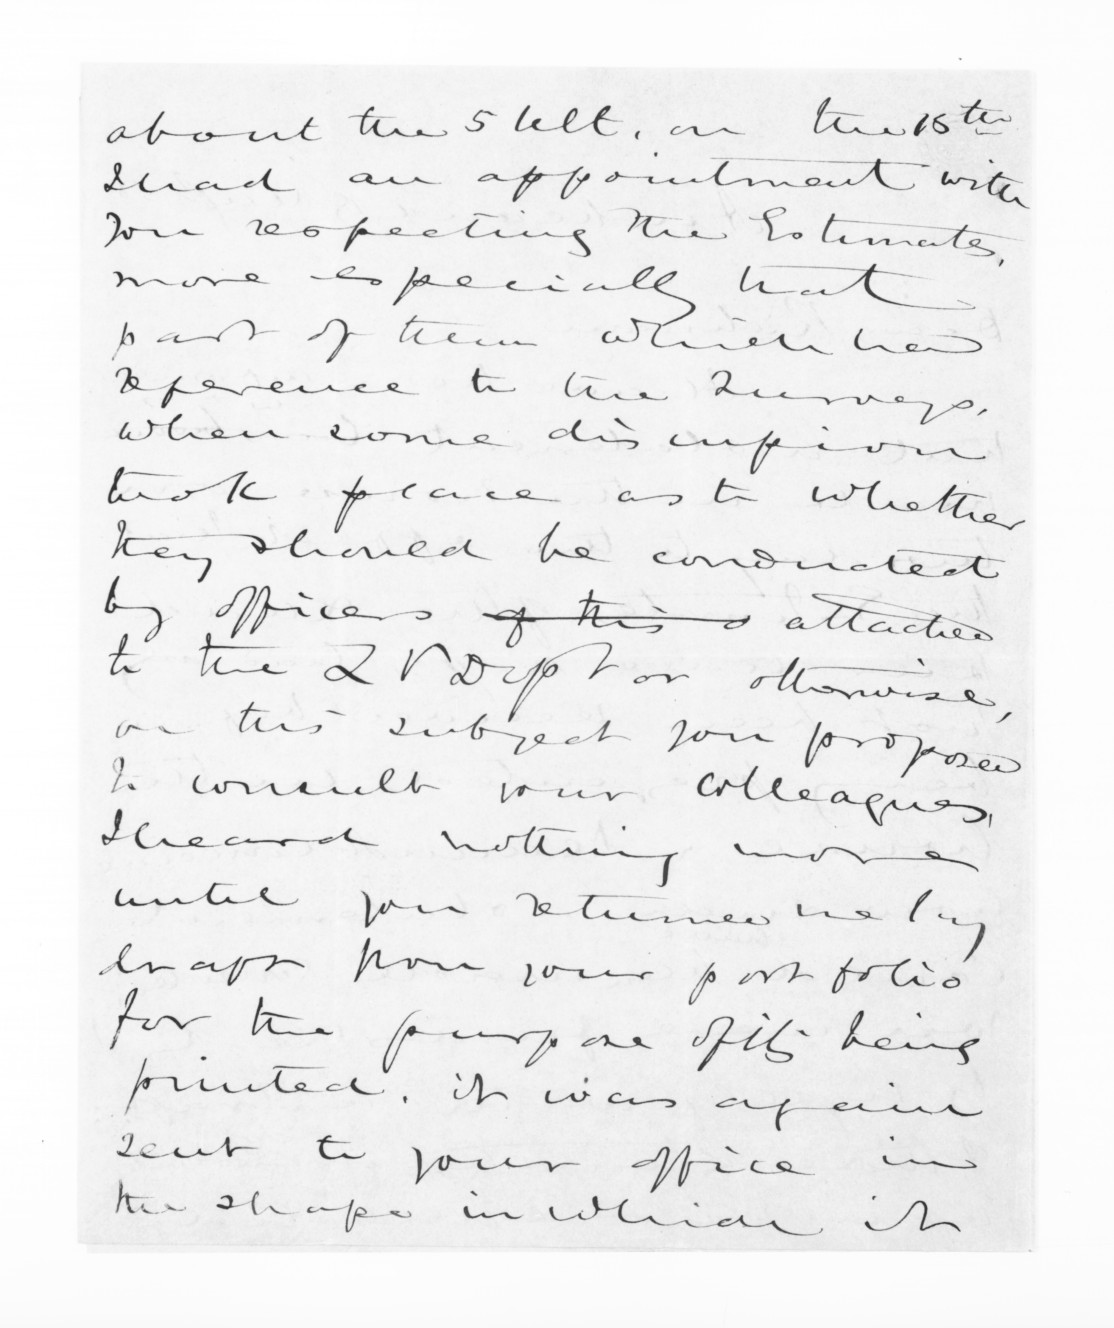 about the 5 Ult. on the 15th
I had an appointment with
you respecting the Estimates,
more especially that
part of them which has
reference to the Surveys,
when some discussion
took place as to whether
they should be conducted
by officers of this attached
to the L P Dept or otherwise,
on this subject you proposed
to consult your colleagues,
I heard nothing more
until you returned me my
draft from your portfolio
for the purpose of its being
printed. it was again
sent to your office in
the shape in which it